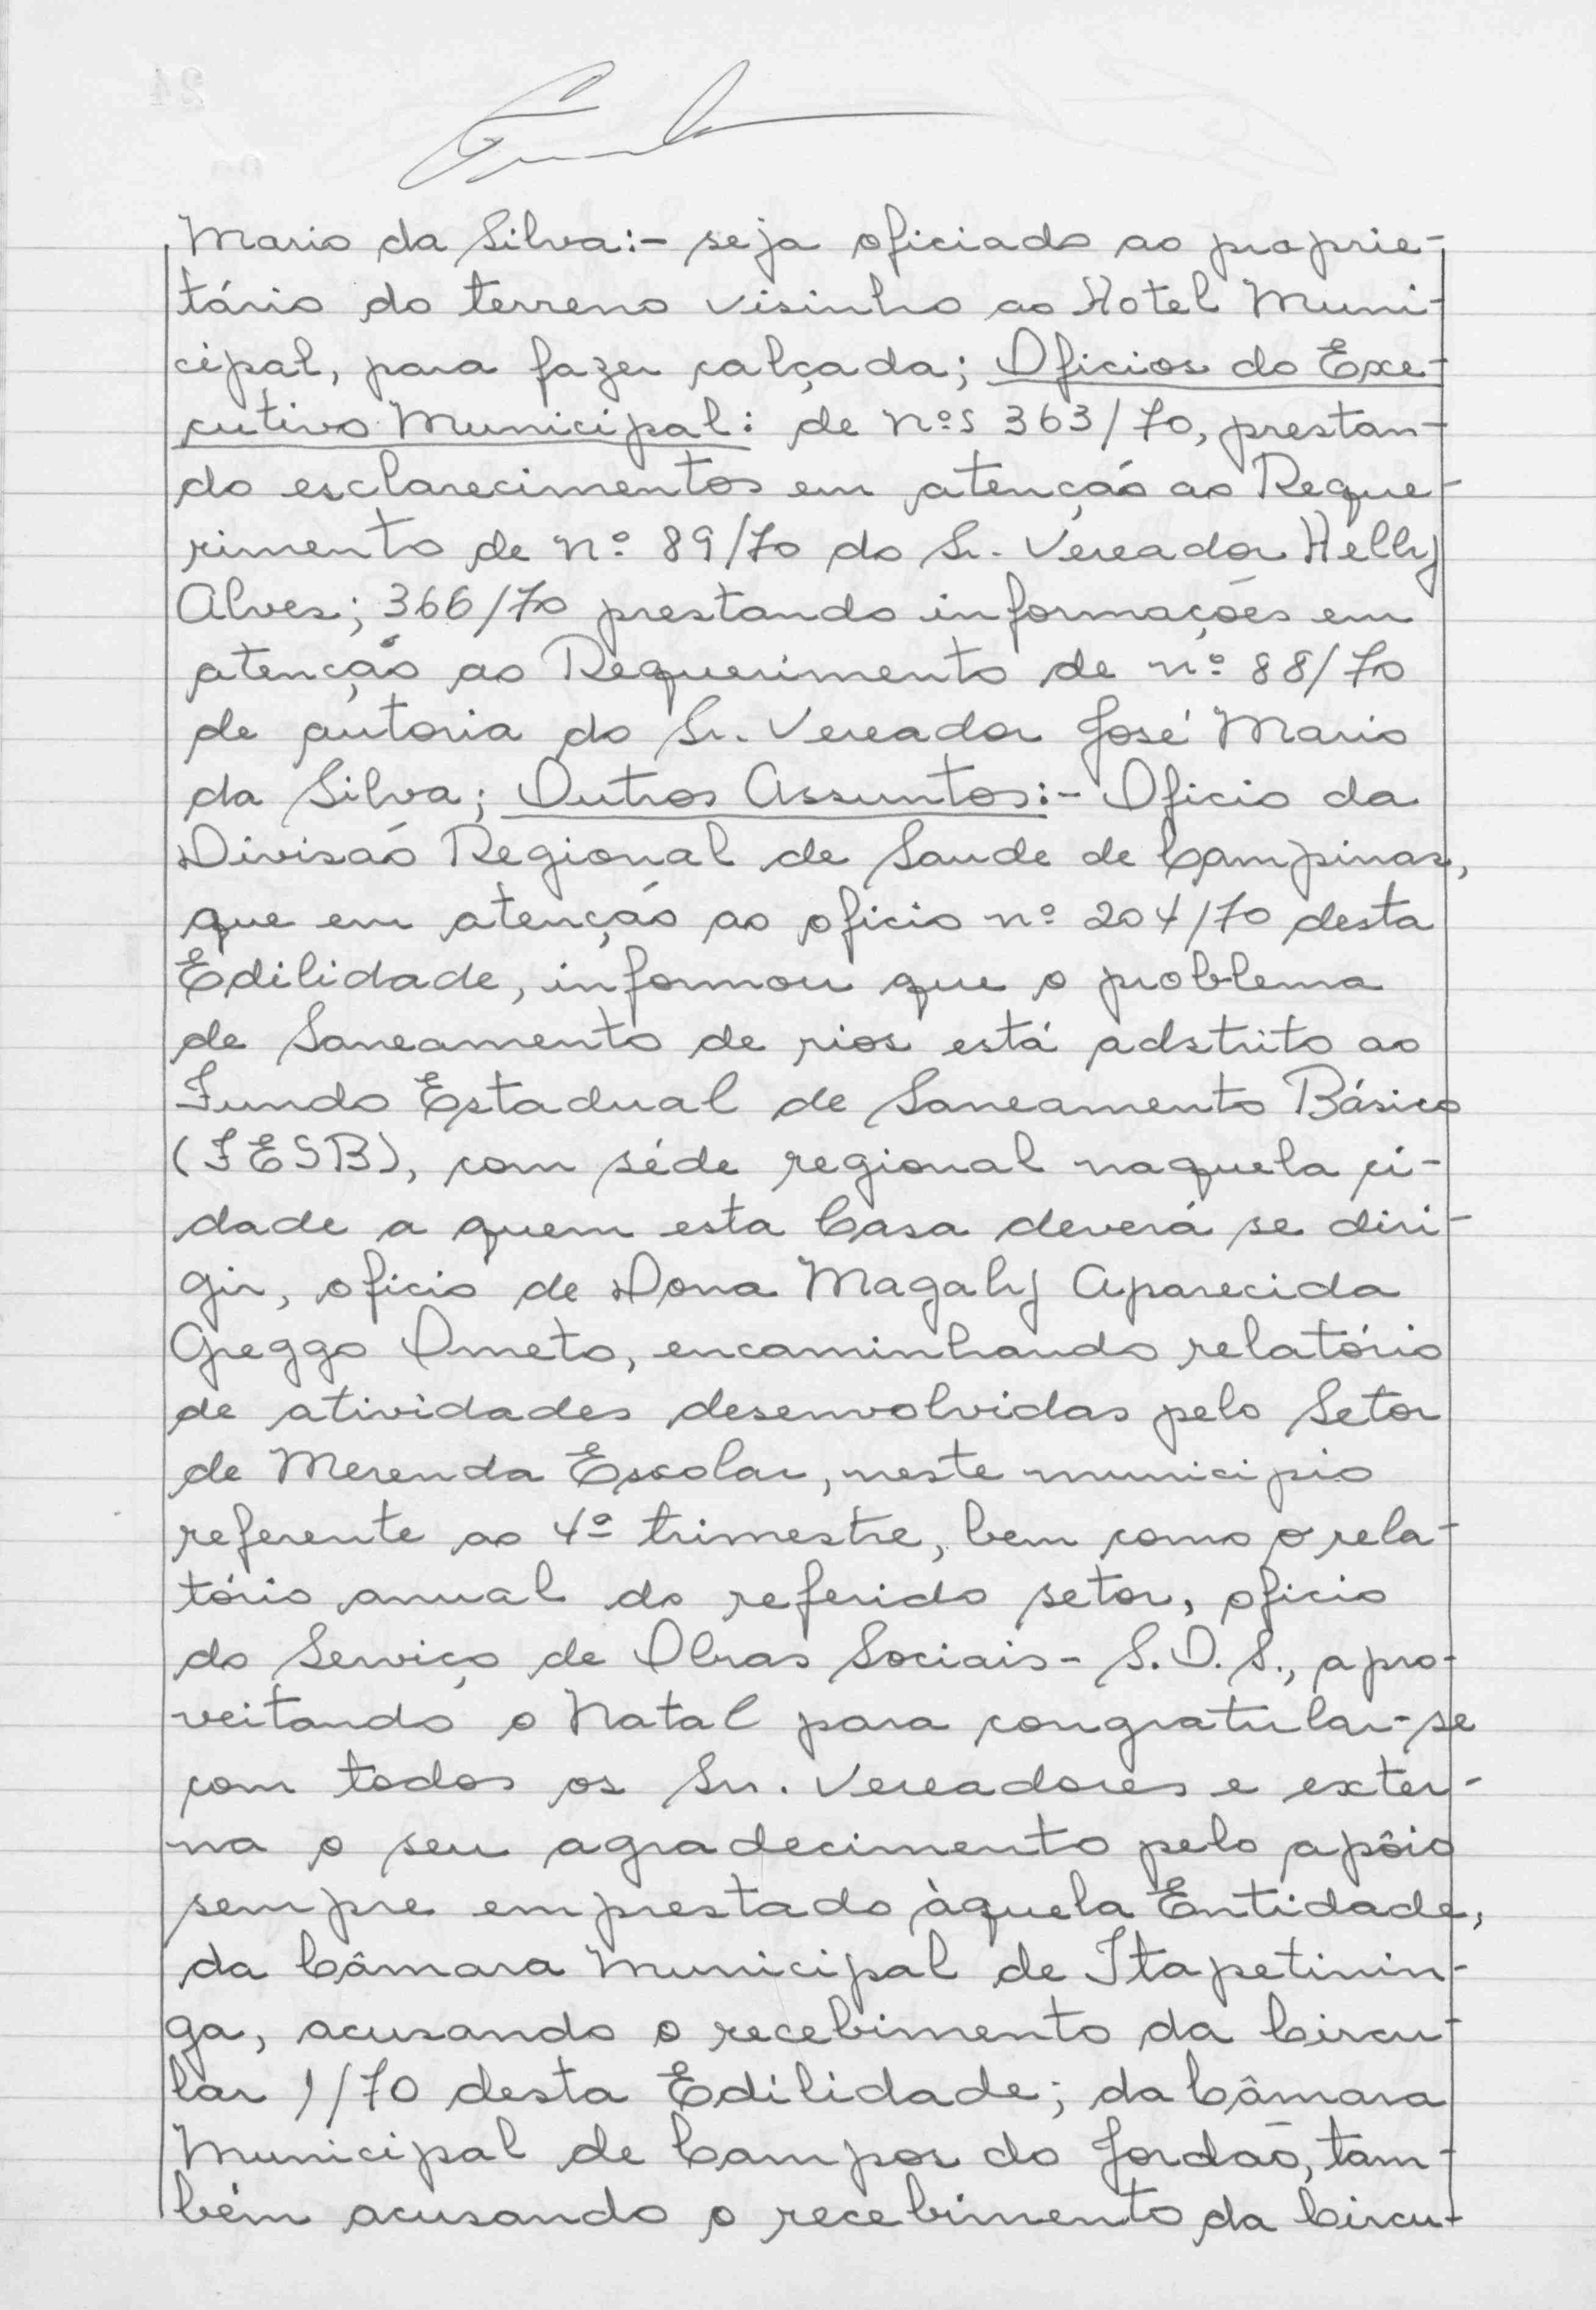 Mario da Silva:- seja oficiado ao proprie-
tário do terreno visinho ao Hotel Muni-
cipal, para fazer calçada; Oficios do Exe-
cutivo Municipal: de nºs 363/70, prestan-
do esclarecimentos em atenção ao Reque-
rimento de nº 89/70 do Sr. Vereador Helly
Alves; 366/70 prestando informações em
atenção ao Requerimento de nº 88/70
de autoria do Sr. Vereador José Mario
da Silva; Outros Assuntos:- Oficio da
Divisão Regional de Saude de Campinas,
que em atenção ao oficio nº 204/70 desta
Edilidade, informou que o problema
de Saneamento de rios está adstrito ao
Fundo Estadual de Saneamento Básico
(FESB), com séde regional naquela ci-
dade a quem esta Casa deverá se diri-
gir, oficio de Dona Magaly Aparecida
Greggo Ometo, encaminhando relatório
de atividades desenvolvidas pelo Setor
de Merenda Escolar, neste municipio
referente ao 4º trimestre, bem como o rela-
tório anual do referido setor, oficio
do Serviço de Obras Sociais - S.O.S., apro-
veitando o Natal para congratular-se
com todos os Srs. Vereadores e exter-
na o seu agradecimento pelo apôio
sempre emprestado àquela Entidade,
da Câmara Municipal de Itapetinin-
ga, acusando o recebimento da Circu-
lar 1/70 desta Edilidade; da Câmara
Municipal de Campos do Jordão, tam-
bém acusando o recebimento da Circu-